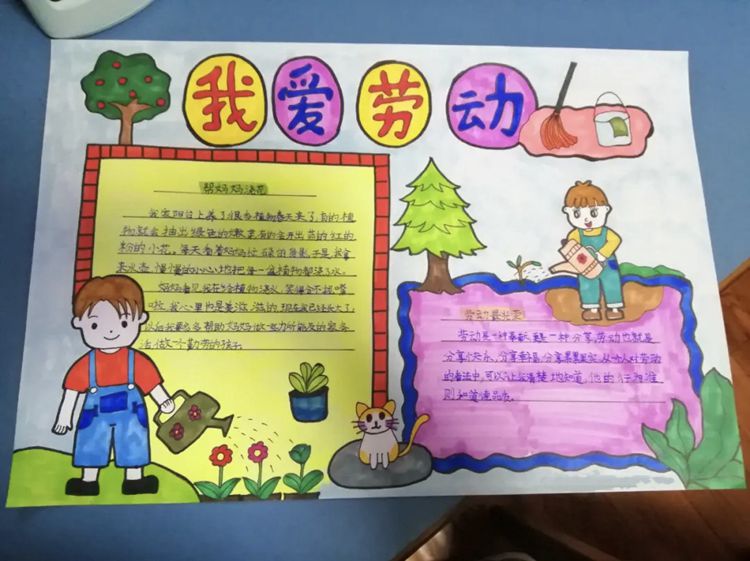 我爱劳动
帮妈妈浇花
我家阳台上养了很多植物春天来了,有的植
物就会抽出绿色的嫩芽有的会开出黄的红的
粉的小花。每天看着妈妈忙碌的身影于是我拿
来水壶 慢慢的小心地把每一盆植物都浇了水。
妈妈看见我在给植物浇水,笑得合不拢嘴
我心里也是美滋滋的 现在我已经长大了,
以后我要多多帮助妈妈做一些力所能及的家务
活,做一个勤劳的孩子
劳动最光荣
劳动是一种奉献 更是一种分享,劳动也就是
分享快乐、分享幸福、分享果果累累实,从一个人对劳动
的看法中,可以让我清楚地知道,他的行为准
则和道德品质。